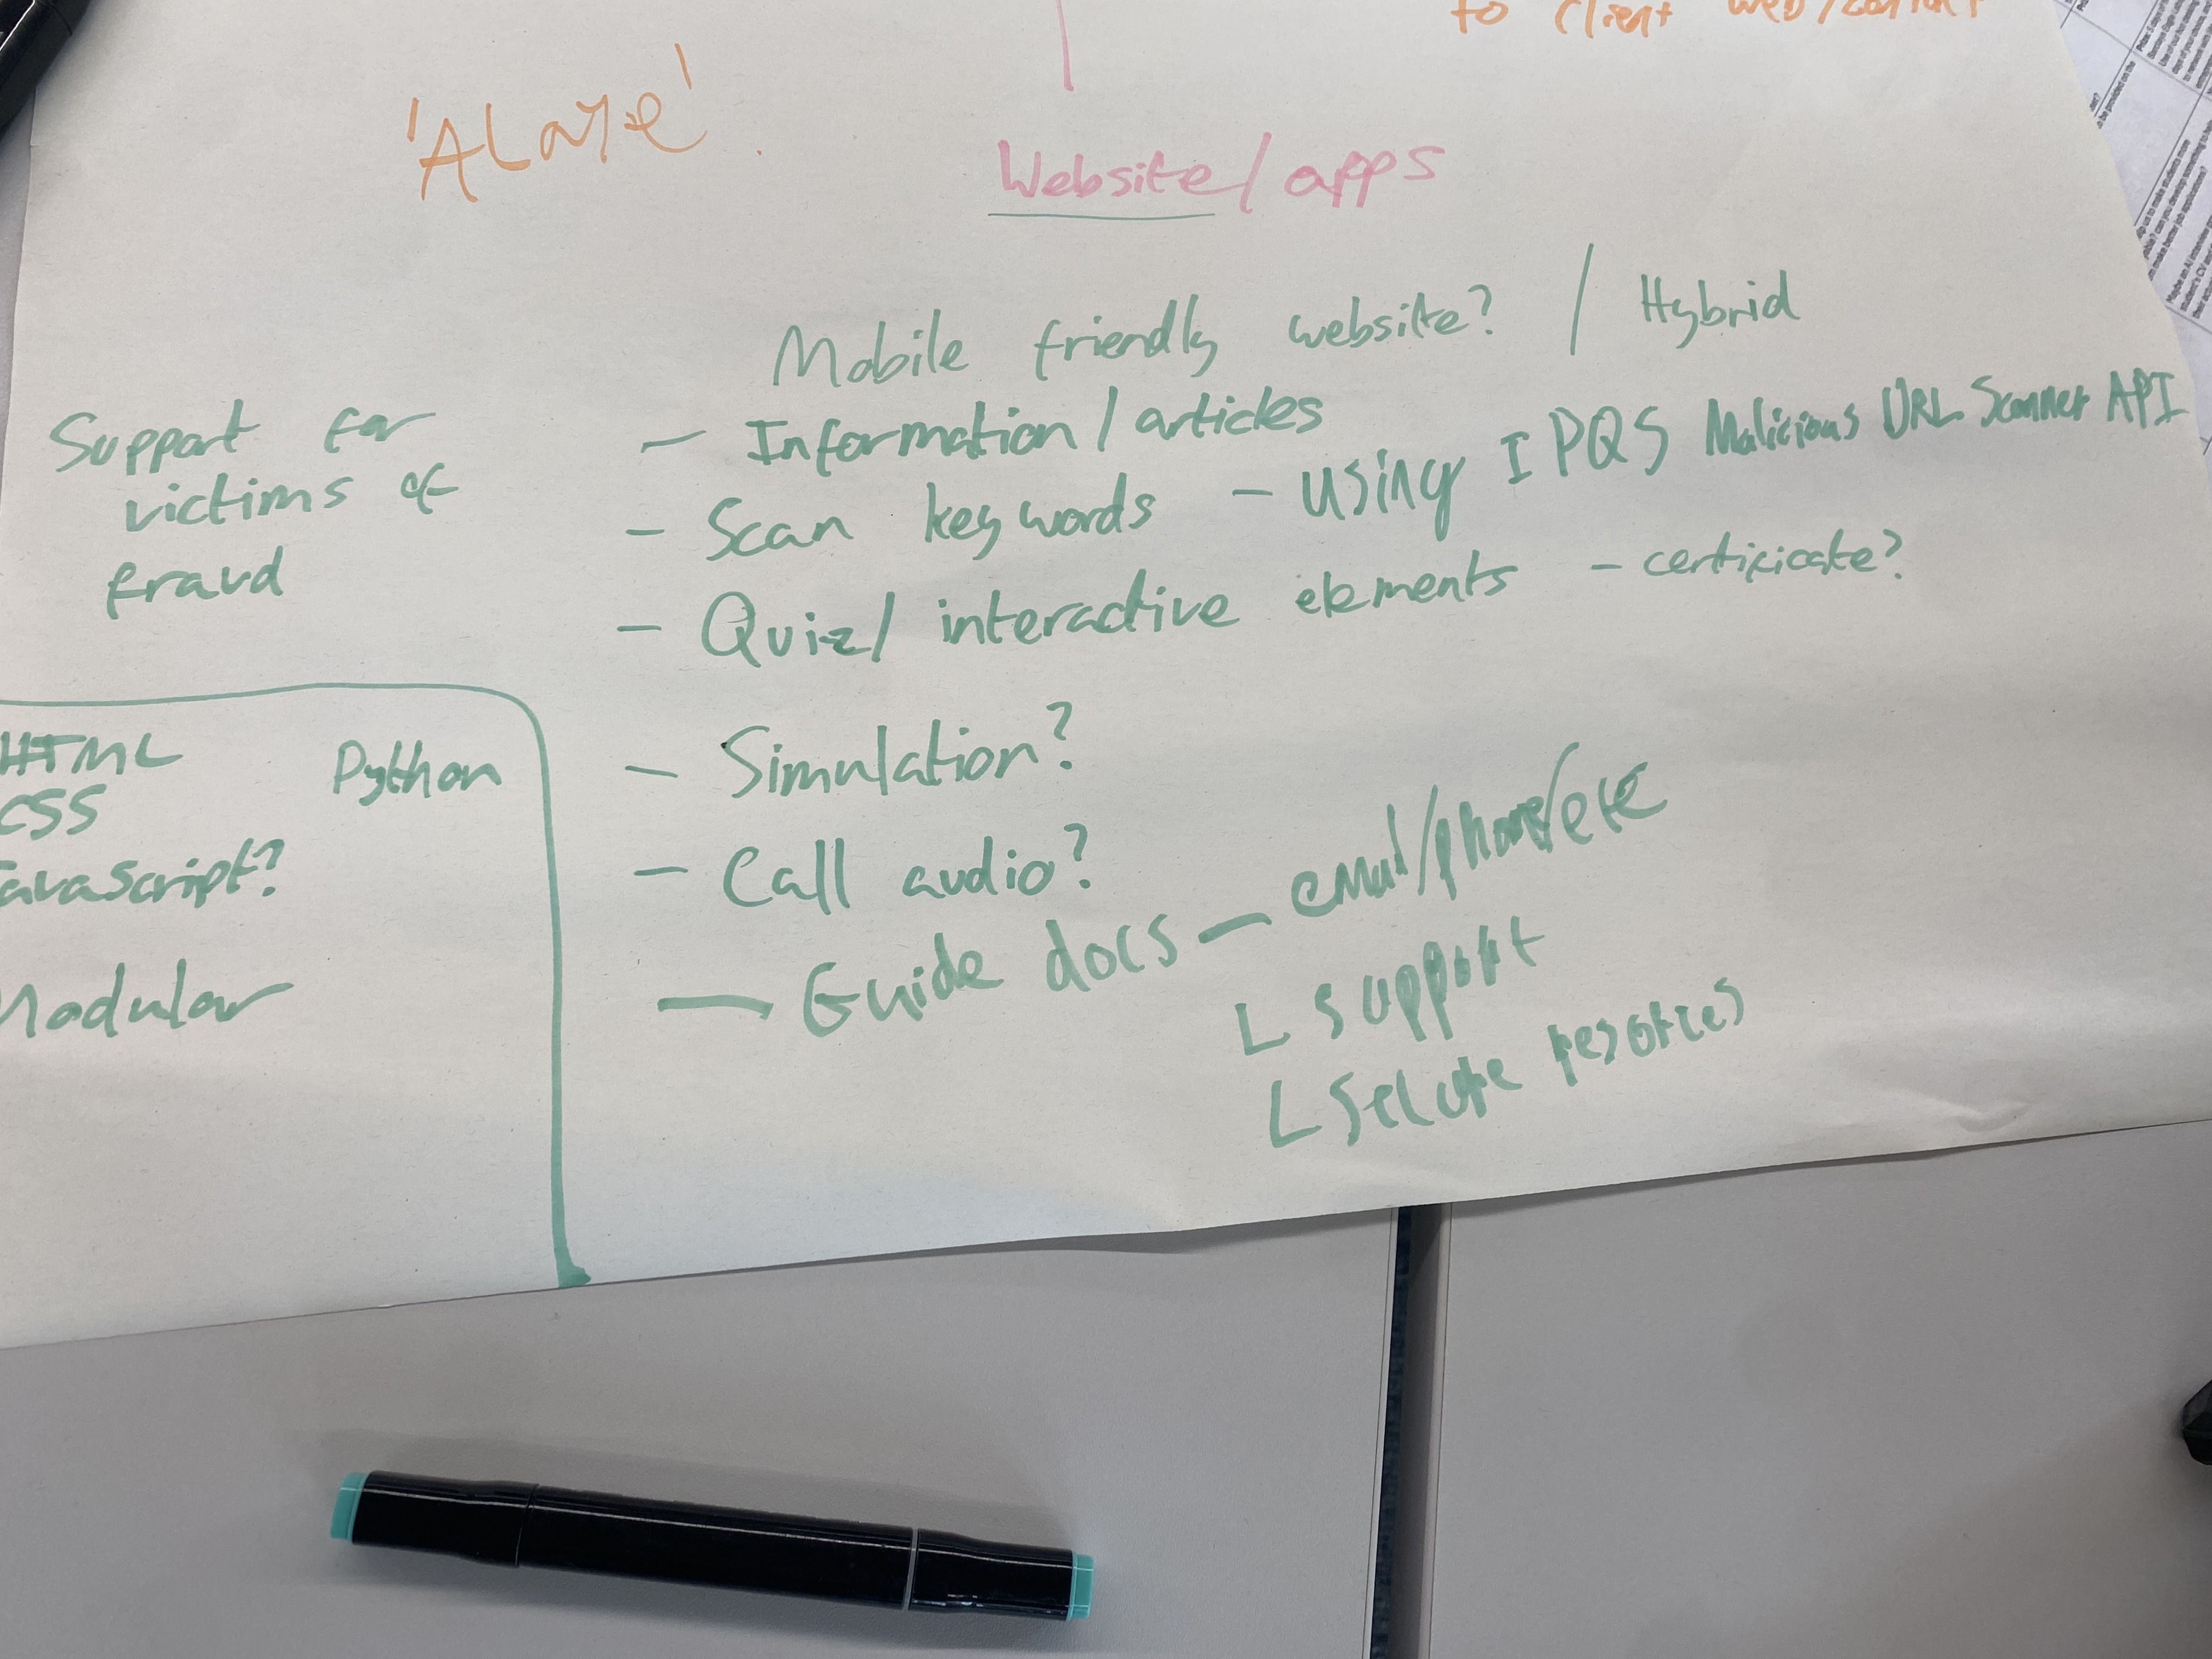 to client web/
Website/apps
Mobile friendly website? / Hybrid
- Information/articles
- Scan key words - using IPQS Malicious URL Scanner API
- Quiz/ interactive elements - certificate?
- Simulation?
- Call audio?
- Guide docs - email/phone/etc
L support
L
Support for
victims of
fraud
HTML Python
CSS
Javascript?
Modular